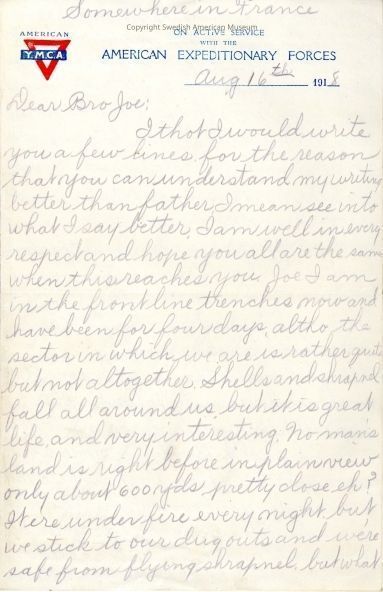 Somewhere in France
Copyright Swedish American Museum
AMERICAN
Y.M.C.A.
ON ACTIVE SERVICE
WITH THE
AMERICAN EXPEDITIONARY FORCES
Aug 16th 1918
Dear Bro Joe;
I thot I would write
you a few lines, for the reason
that you can understand my writing
better than father, I mean see into
what I say better, I am well in every
respect and hope you all are the same
when this reaches you. Joe I am
in the front line trenches now and
have been for four days, altho the
sector in which we are is rather quite
but not altogether. Shells and shrapnel
fall all around us, but it is great
life, and very interesting. No man's
land is right before in plain view
only about 600 yds pretty close eh?
We're under fire every night, but
we stick to our dugouts and we're
safe from flying shrapnel, but what